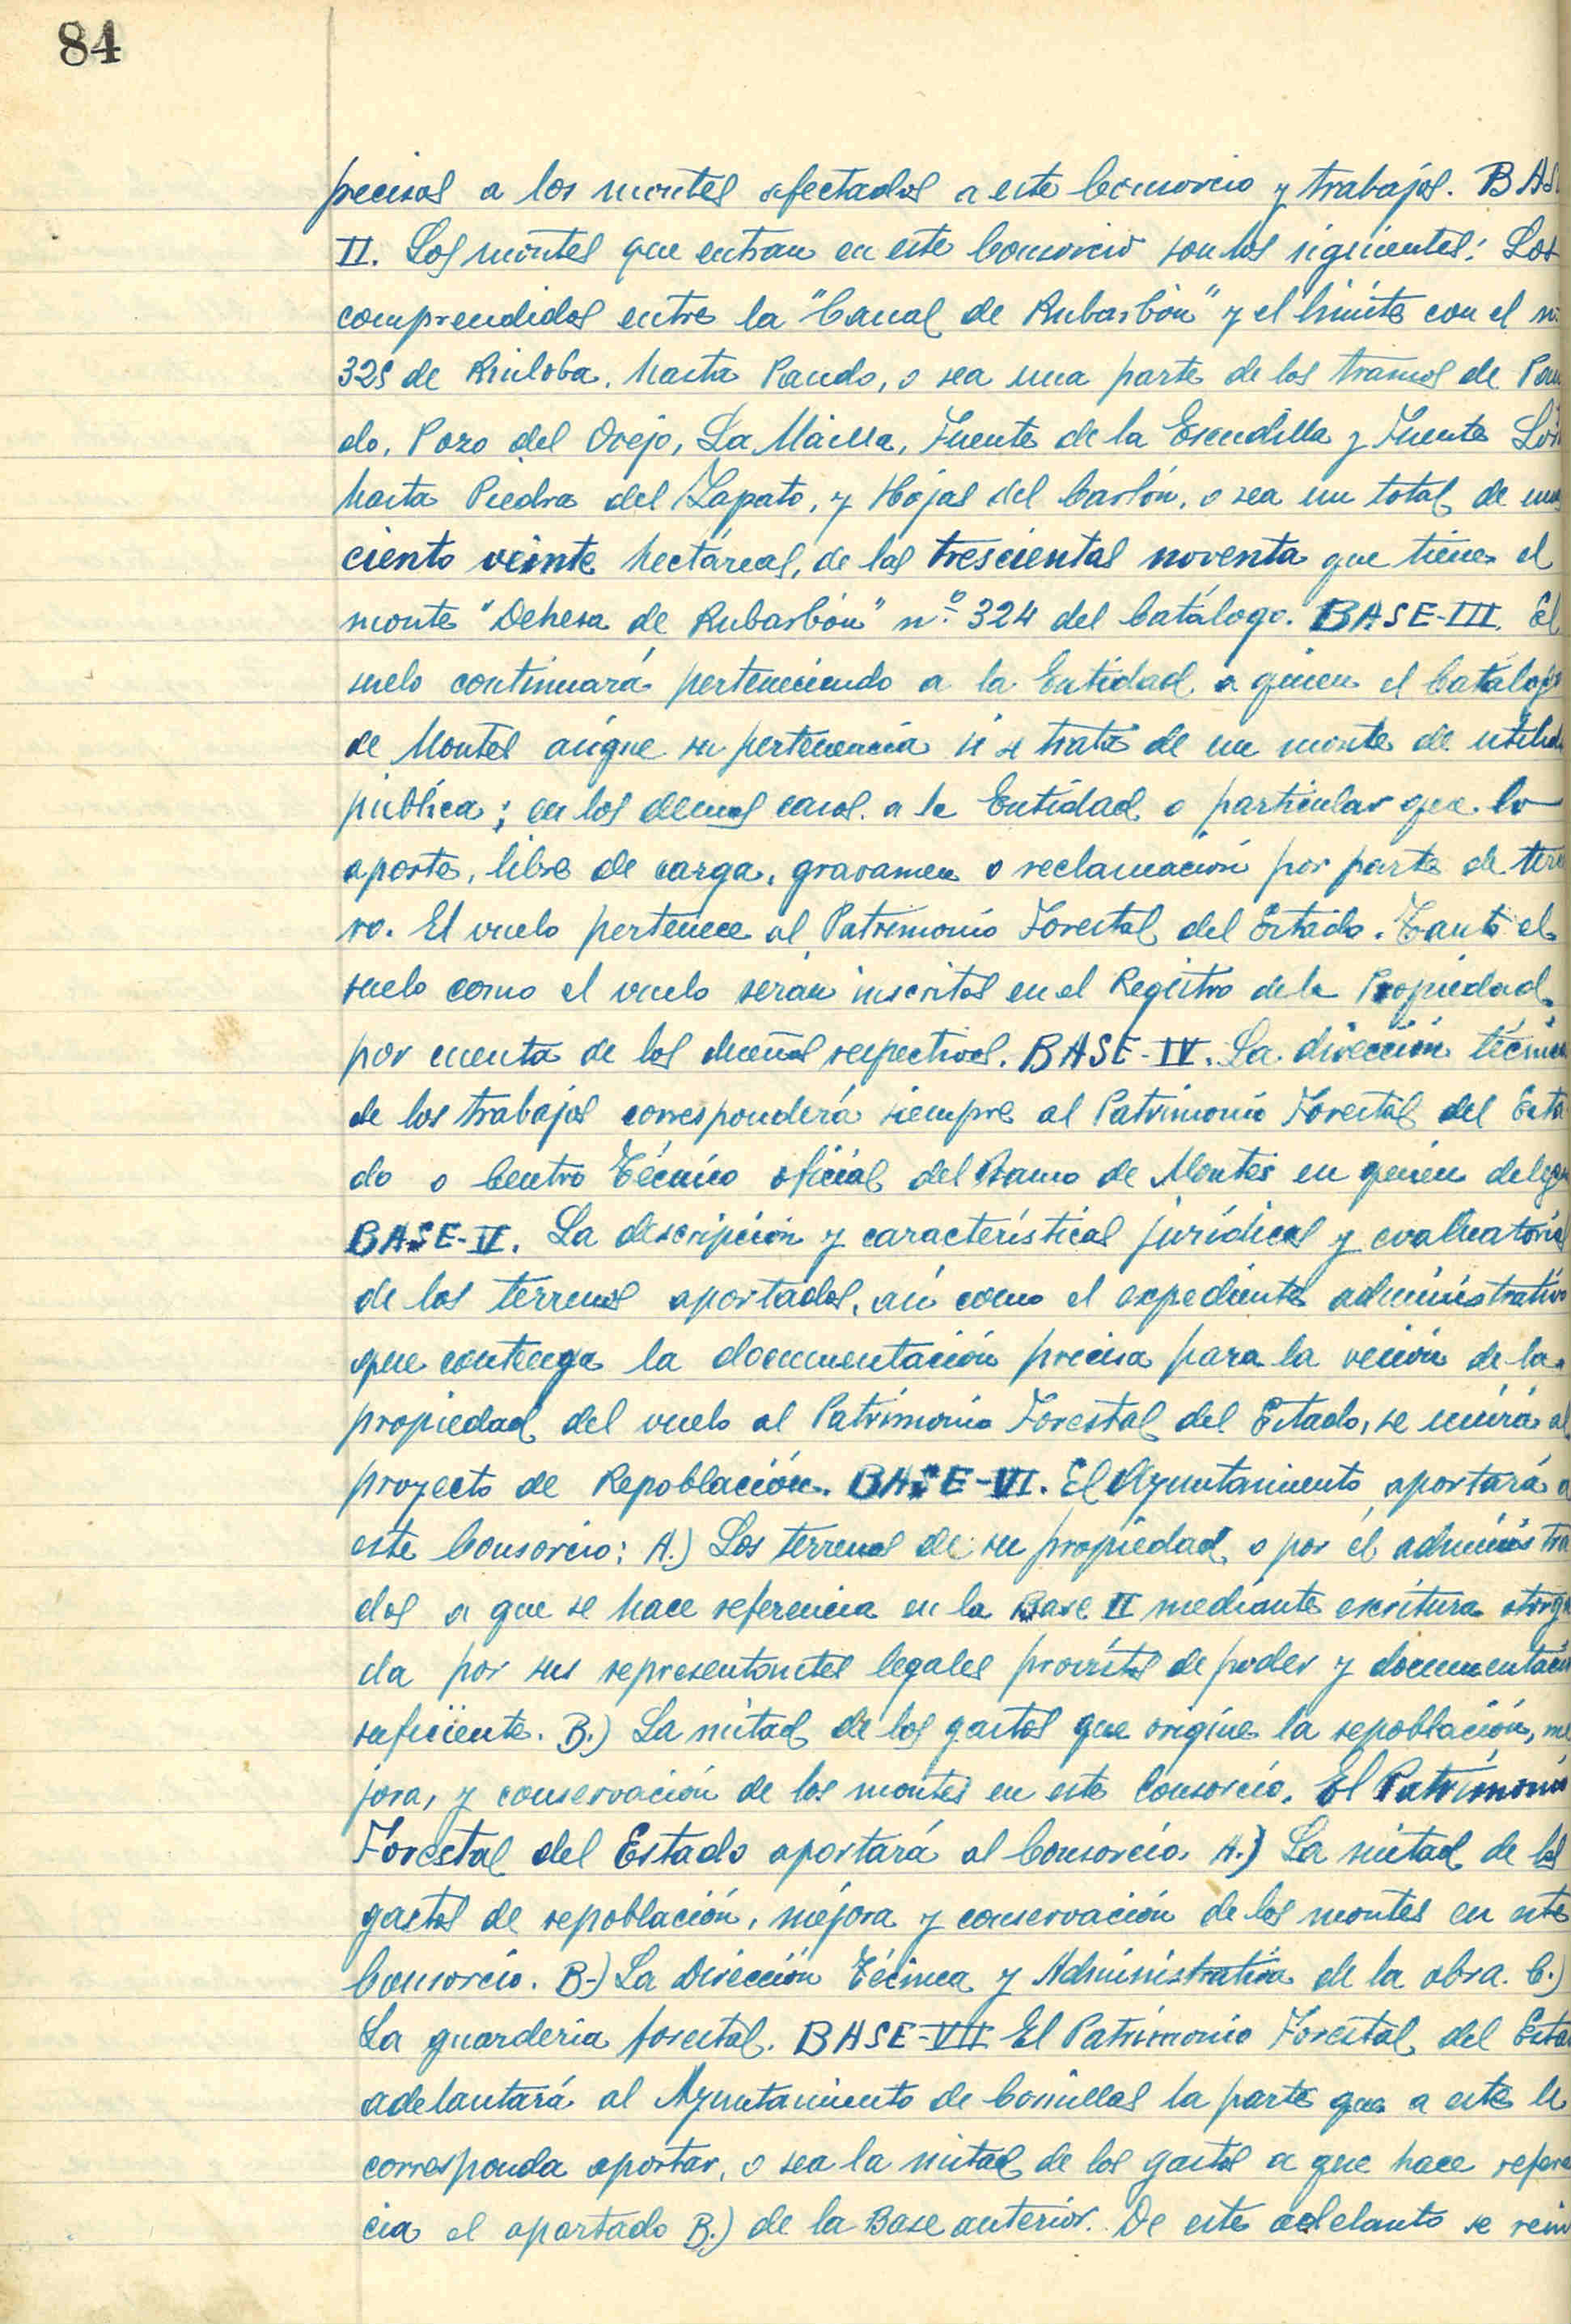 84
precisos a los montes afectados a este Consorcio y trabajos. BAS
II. Los montes que entran en este Consorcio son los siguientes: Los
comprendidos entre la "Canal de Rubarbón" y el límite con el nº
325 de Ruiloba, hasta Pando, o sea una parte de los tramos de Pan
do, Pozo del Ovejo, La Mailla, Fuente de la Escudilla y Fuente
hasta Piedra del Zapato, y Hojas del Carbón, o sea un total de unas
ciento veinte hectáreas, de las trescientas noventa que tiene el
monte "Dehesa de Rubarbón" nº 324 del Catálogo. BASE-III. El
suelo continuará perteneciendo a la Entidad a quien el Catálogo
de Montes asigne su pertenencia si se trata de un monte de utilid
pública; en los demas casos a la Entidad o particular que lo
aporte, libre de carga, gravamen o reclamación por parte de terce
ro. El vuelo pertenece al Patrimonio Forestal del Estado. Tanto el
suelo como el vuelo serán inscritos en el Registro de la Propiedad,
por cuenta de los dueños respectivos. BASE-IV. La dirección técnica
de los trabajos corresponderá siempre al Patrimonio Forestal del Esta
do o Centro Técnico oficial del Ramo de Montes en quien delegue
BASE-V. La descripción y características jurídicas y evaluatorias
de los terrenos aportados, así como el expediente administrativo
que contenga la documentación precisa para la cesión de la
propiedad del vuelo al Patrimonio Forestal del Estado, se unirá al
proyecto de Repoblación. BASE-VI. El Ayuntamiento aportará a
este Consorcio: A.) Los terrenos de su propiedad o por él administra
dos a que se hace referencia en la Base II mediante escritura otorga
da por sus representantes legales provistos de poder y documentación
suficiente. B.) La mitad de los gastos que origine la repoblación, me
jora, y conservación de los montes en este Consorcio. El Patrimonio
Forestal del Estado aportará al Consorcio. A.) La mitad de los
gastos de repoblación, mejora y conservación de los montes en este
Consorcio. B-) La Dirección Técnica y Administrativa de la obra. C.)
La guarderia forestal. BASE-VII El Patrimonio Forestal del Esta
adelantará al Ayuntamiento de Comillas la parte que a este le
corresponda aportar, o sea la mitad de los gastos a que hace referen
cia el apartado B.) de la Base anterior. De este adelanto se rein